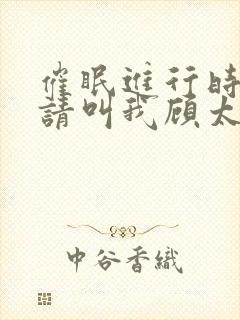 催眠進行時
請叫我顾太
中谷香織